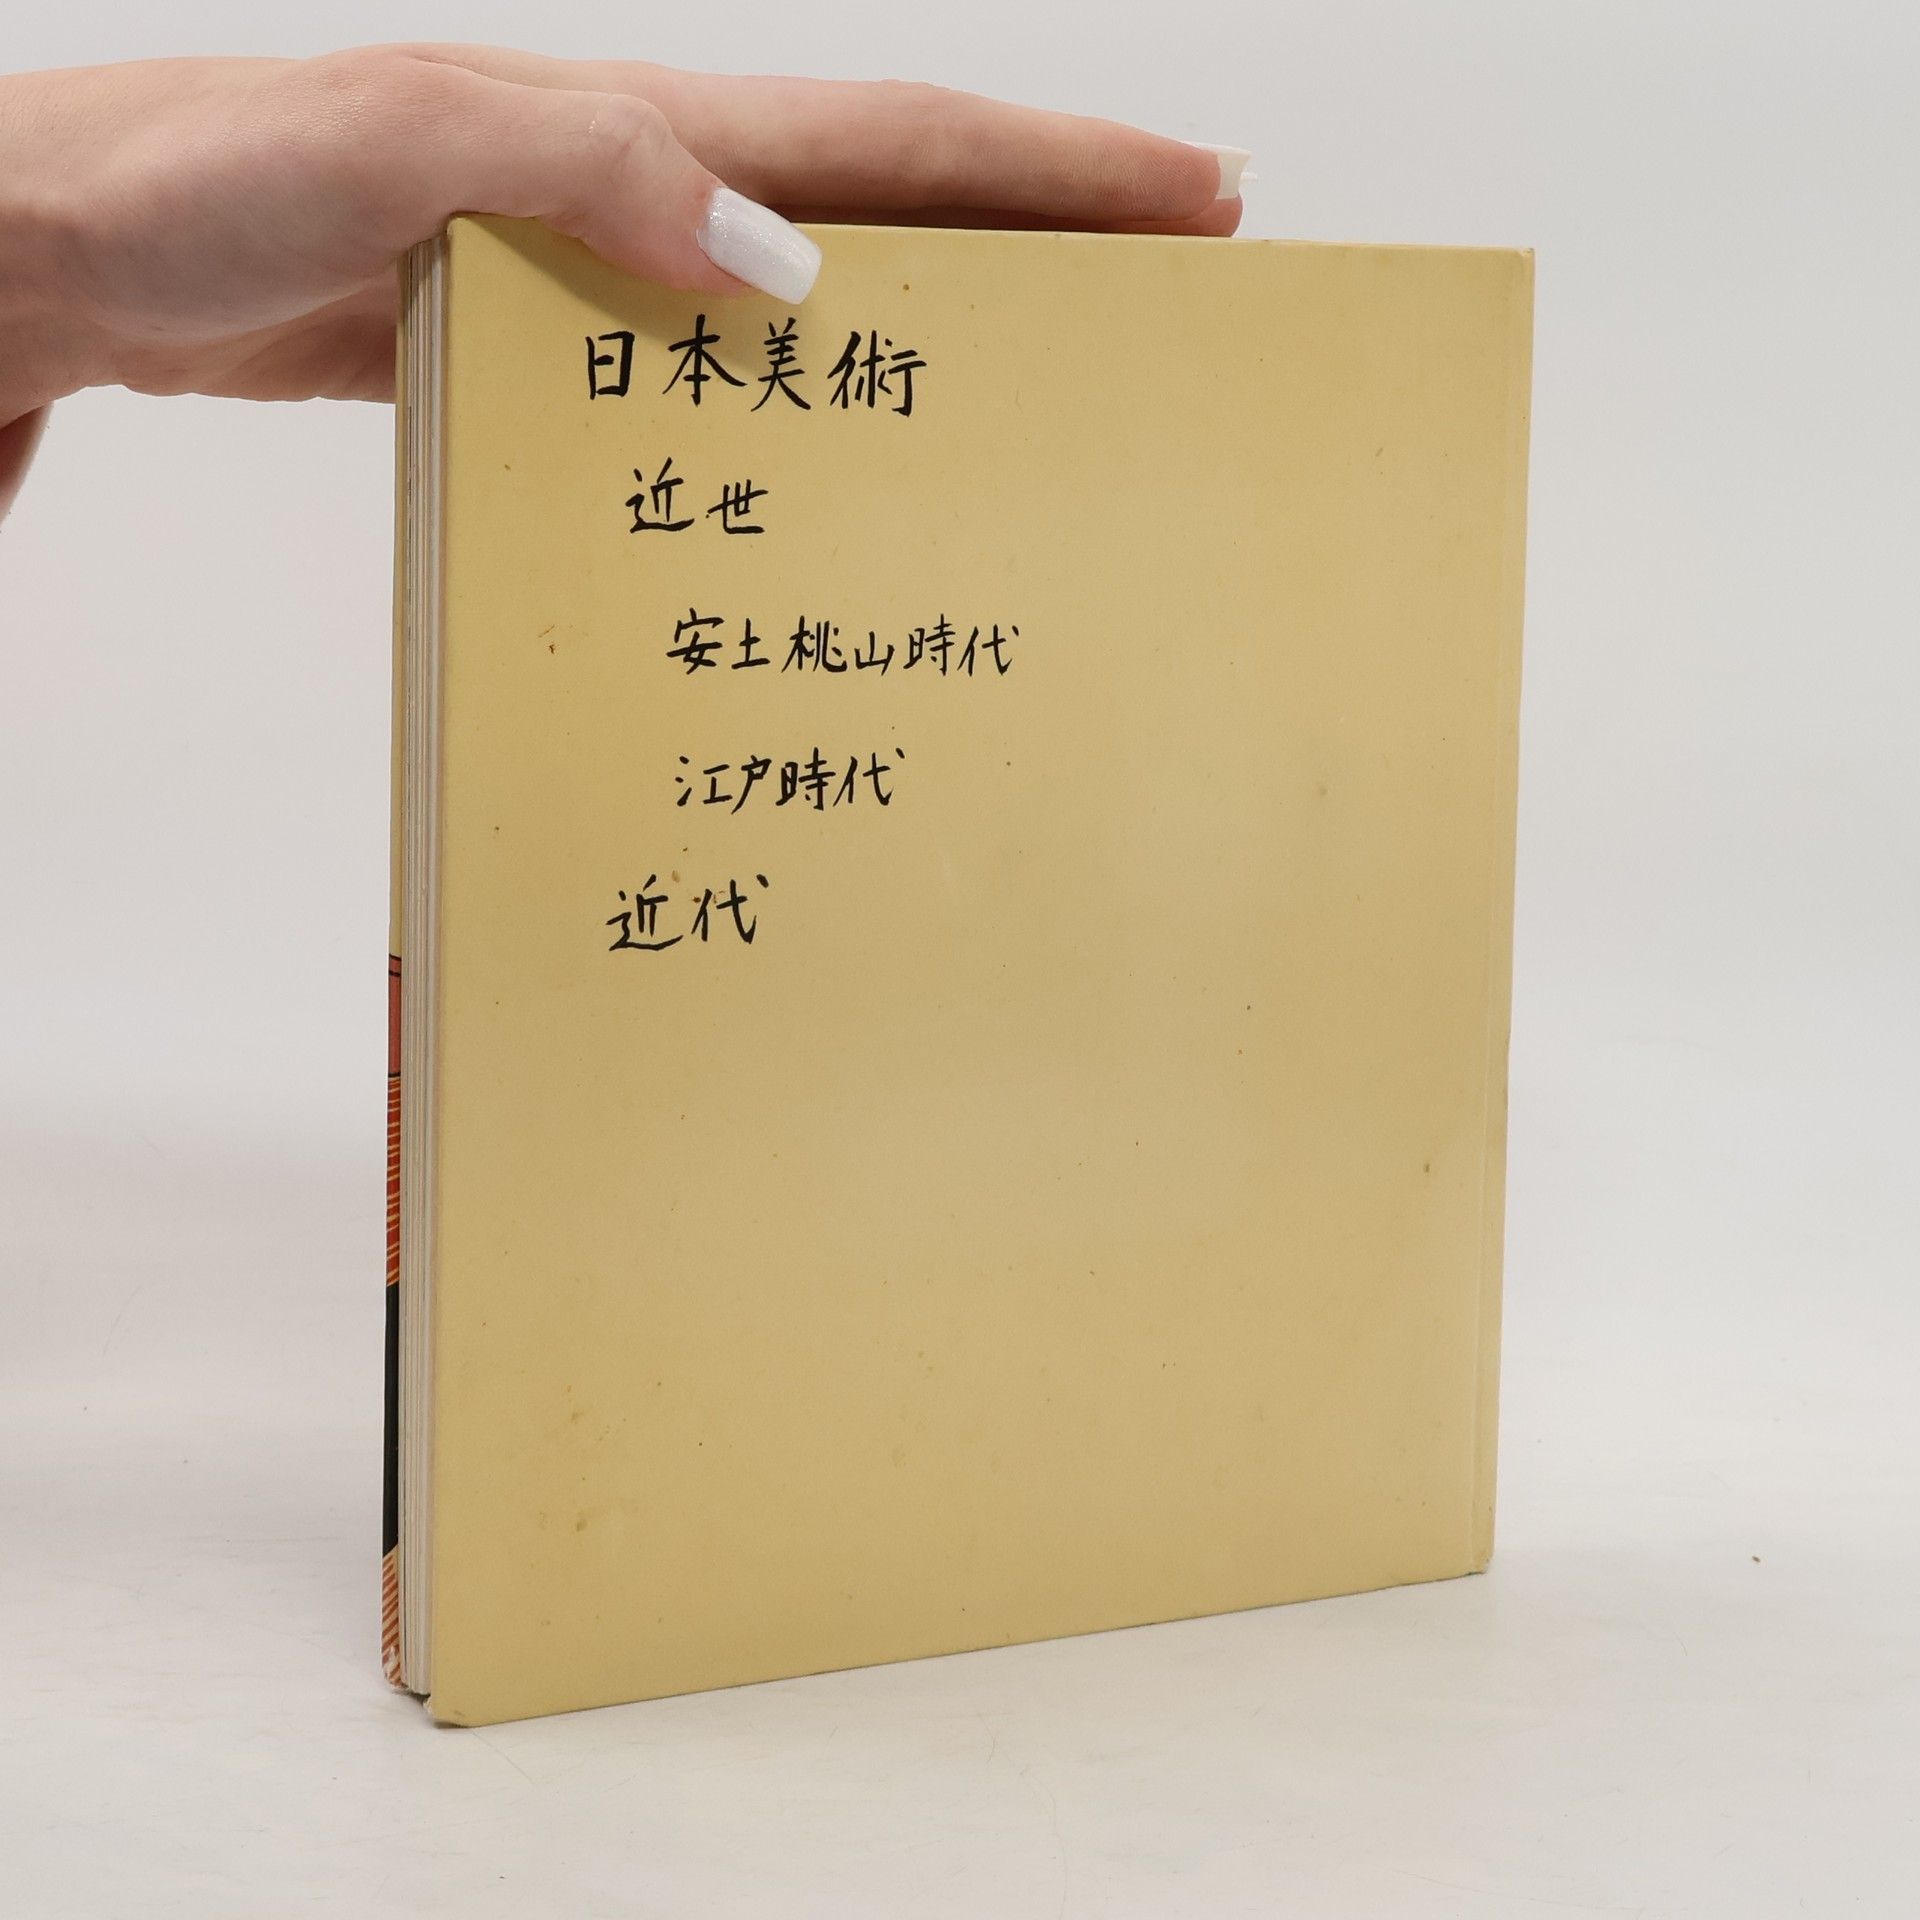 日本美術
近世
安土桃山時代
江戸時代
近代